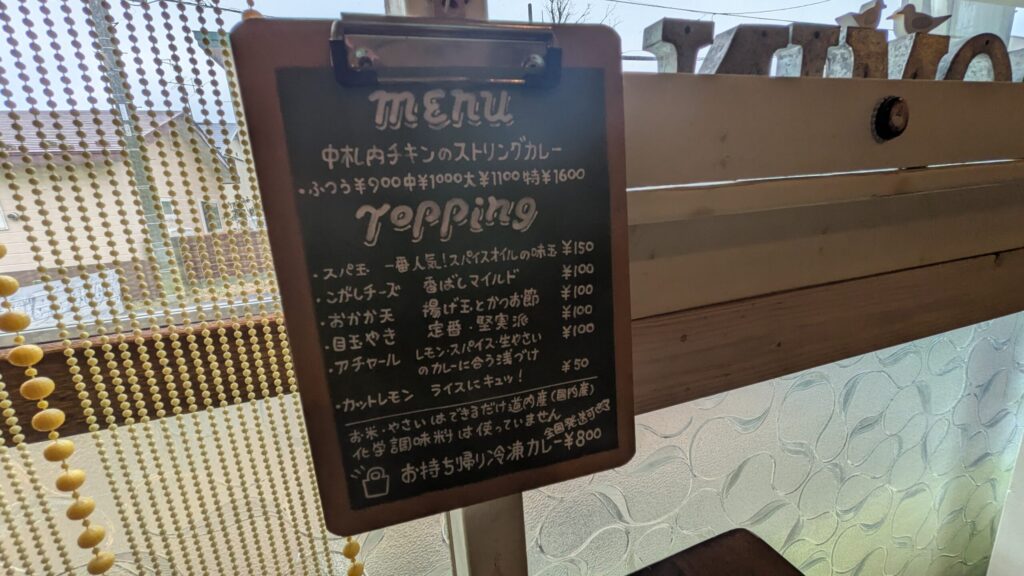 MENU
中札内チキンのストリングカレー
・ふつう¥900中¥1000大¥1100特¥1600
Topping
・スパ玉 一番人気!スパイスオイルの味玉 ¥150
・こがしチーズ 香ばしマイルド ¥100
・おかか天 揚げ玉とかつお節 ¥100
・目玉やき 定番・堅実派 ¥100
・アチャール レモン・スパイス・生やさい ¥100
のカレーに合う浅づけ
・カットレモン ライスにキュッ! ¥50
お米・やさいはできるだけ道内産(国内産)
化学調味料は使っていません
全国発送可
お持ち帰り冷凍カレー¥800